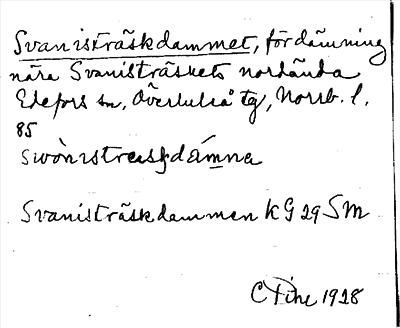 Svanisträskdammet, fördämning
nära Svanisträskets nordända
Edefors sn, Överluleå tg, Norrb. l.
85
Svanisträskdammen KG 29 SM
1928